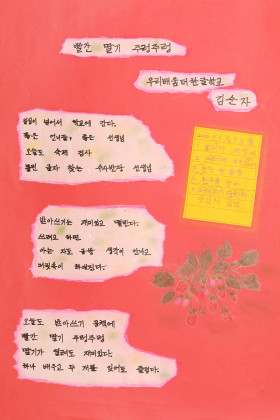 빨간 딸기 주렁주렁
우리배움터한글학교
김순자
설레며 학교에 간다.
좋은 언니들, 좋은 선생님
오늘도 숙제 검사
틀린 글자 찾는 수사반장 선생님
받아쓰기는 재미있고 떨린다.
쓰려고 하면
아는 자도 금방 생각이 안나고
머릿속이 하얘진다.
오늘도 받아쓰기 공책에
빨간 딸기 주렁주렁
딸기가 열려도 재미있다.
하나 배우고 두 개를 잊어도 즐겁다.